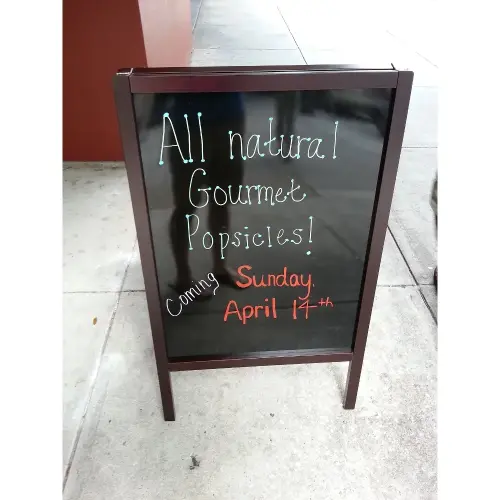 All natural
Gourmet
Popsicles!
Coming Sunday.
April 14th